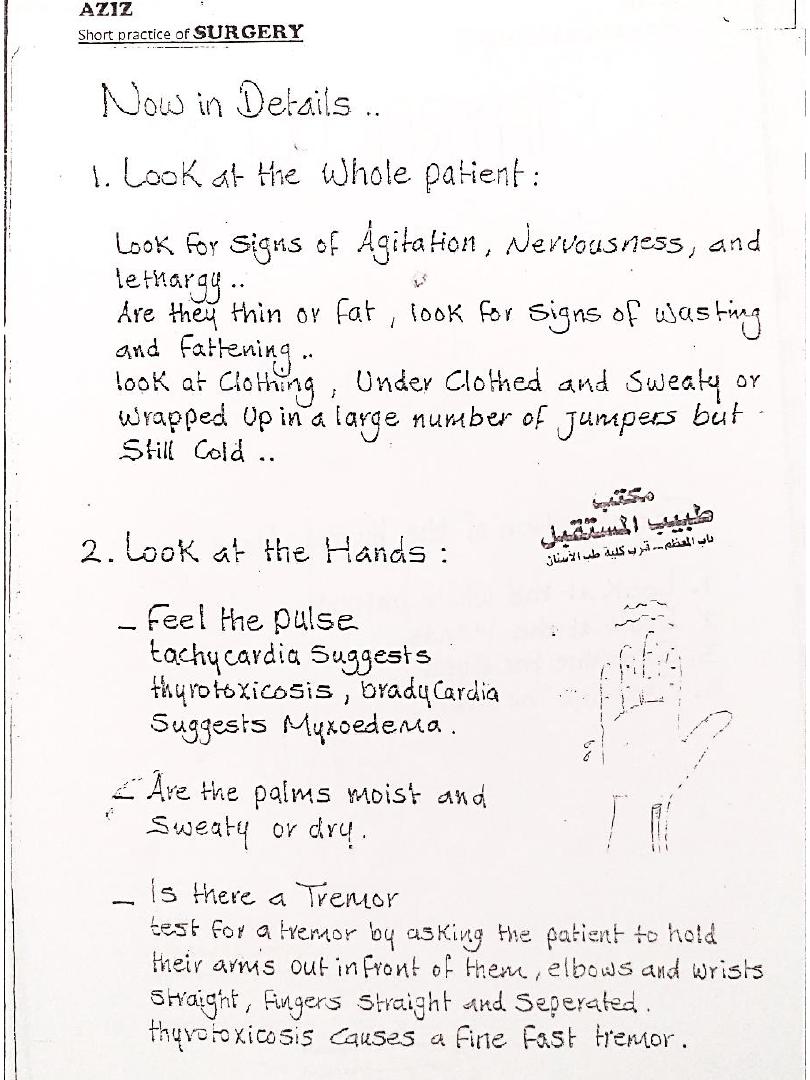 AZIZ
Short practice of SURGERY
Now in Details ..
1. Look at the Whole patient :
Look For Signs of Agitation , Nervousness, and
lethargy ..
Are they thin or fat , look for Signs of Wasting
and Fattening ..
look at Clothing , Under Clothed and Sweaty or
Wrapped Up in a large number of Jumpers but
Still Cold ..
مكتب
طبيب المستقبل
باب المعظم - قرب كلية طب الأسنان
2. Look at the Hands :
- Feel the pulse
tachycardia Suggests
thyrotoxicosis , bradycardia
Suggests Myxoedema .
- Are the palms moist and
Sweaty or dry .
- Is there a Tremor
test for a tremor by asking the patient to hold
their arms out infront of them , elbows and wrists
Straight , Fingers Straight and Seperated .
thyrotoxicosis Causes a fine fast tremor .